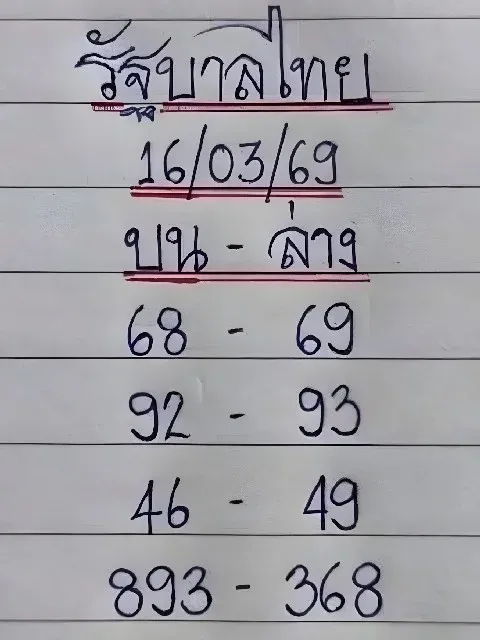 รัฐบาลไทย
16/03/69
บน - ล่าง
68 - 69
92 - 93
46 - 49
893 - 368